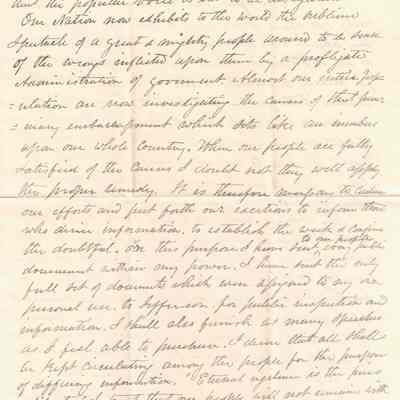 and the popular voice is not to be
Our Nation now exhibits to the world the sublime
spectacle of a great & mighty people aroused to a sense
of the wrongs inflicted upon them by a profligate
Administration of goverment. Almost our entire pop=
=ulation are now investigating the causes of that pecu=
=niary embarrassment which sits like an incubus
upon our whole Country. When our people are fully
satisfied of the causes I doubt not they will apply
the proper remedy. It is therefore necessary to
our efforts and put forth our exertions to inform those
who desire information. to establish the weak & confirm
the doubtful. For this purpose I have sent to our people every public
document within my power. I have sent the only
full set of documents which were assigned to my own
personal use to Jefferson for public inspection and
information. I shall also furnish as many speeches
as I feel able to purchase. I desire that all shall
be kept circulating among the people for the purpose
of diffusing information. "Eternal vigilance is the price
that our people will not remain with